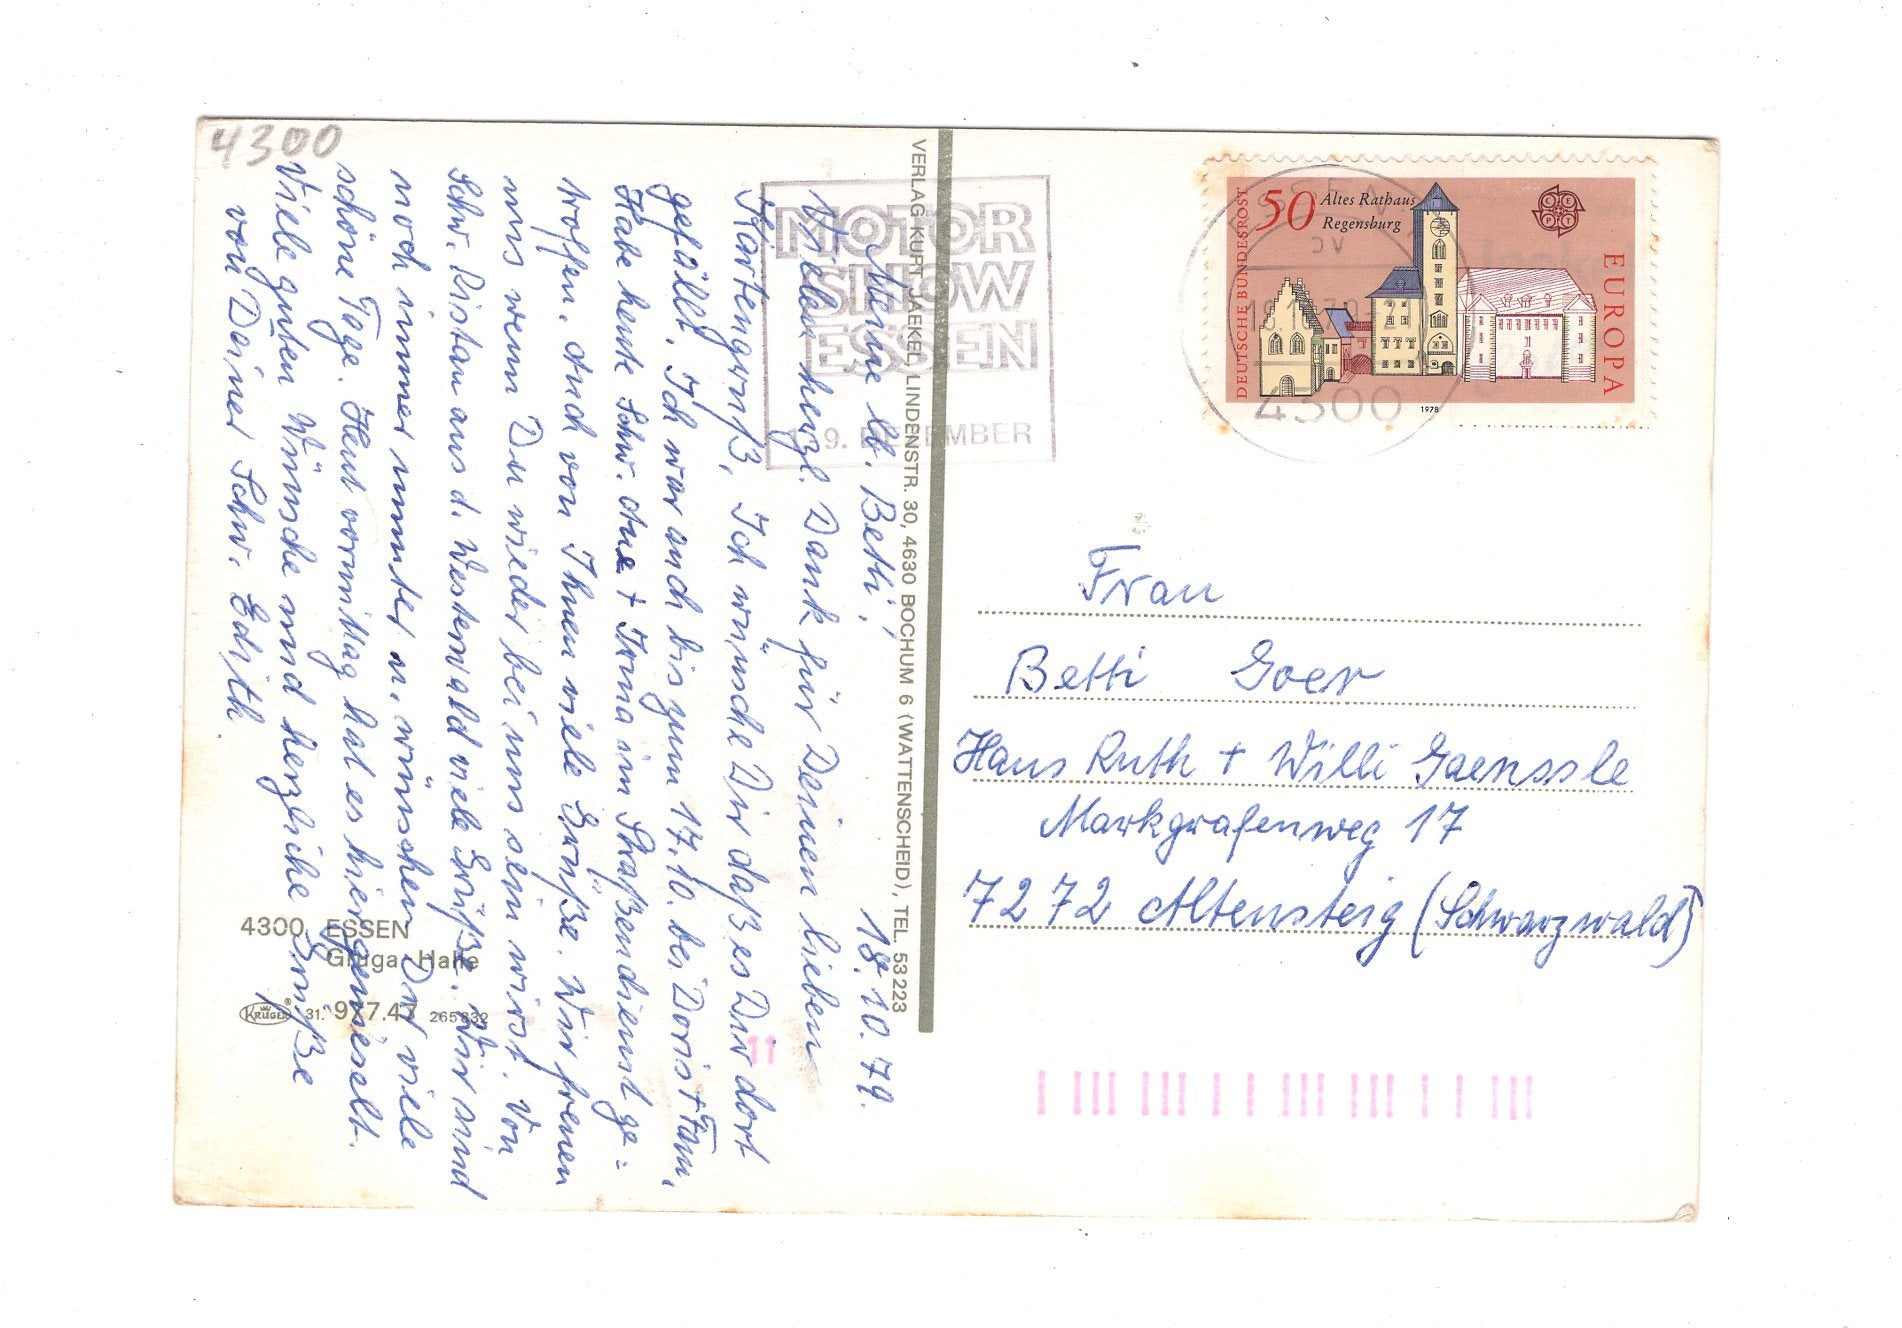 4300
18.10.79.
Meine lb. Betti!
Vielen herzl. Dank für Deinen lieben
Kartengruß, Ich wünsche Dir daß es Dir dort
gefällt. Ich war auch bis zum 17.10. bei Doris + Fam,
Habe heute Schw. Ane + Irma im Straßendienst ge=
troffen, Auch von Ihnen viele Grüße. Wir freuen
uns wenn Du wieder bei uns sein wirst. Von
Schw. Ristau aus d. Westerwald viele Grüße. Wir sind
noch immer munter u. wünschen Dir viele
schöne Tage. Heut vormittag hat es hier genieselt.
Viele guten Wünsche und herzliche Grüße
von Deiner Schw. Edith.
4300 ESSEN
Gruga-Halle
KRÜGER ® 31. 977.47 265832
VERLAG KURT JAEKEL, LINDENSTR. 30, 4630 BOCHUM 6 (WATTENSCHEID), TEL. 53223
MOTOR
SHOW
ESSEN
9. DEZEMBER
11
DEUTSCHE BUNDESPOST
50
Altes Rathaus
Regensburg
CEPT
EUROPA
1978
ESSEN 1
4300
Frau
Betti Goer
Haus Ruth + Willi Gaenssle
Markgrafenweg 17
7272 Altensteig (Schwarzwald)